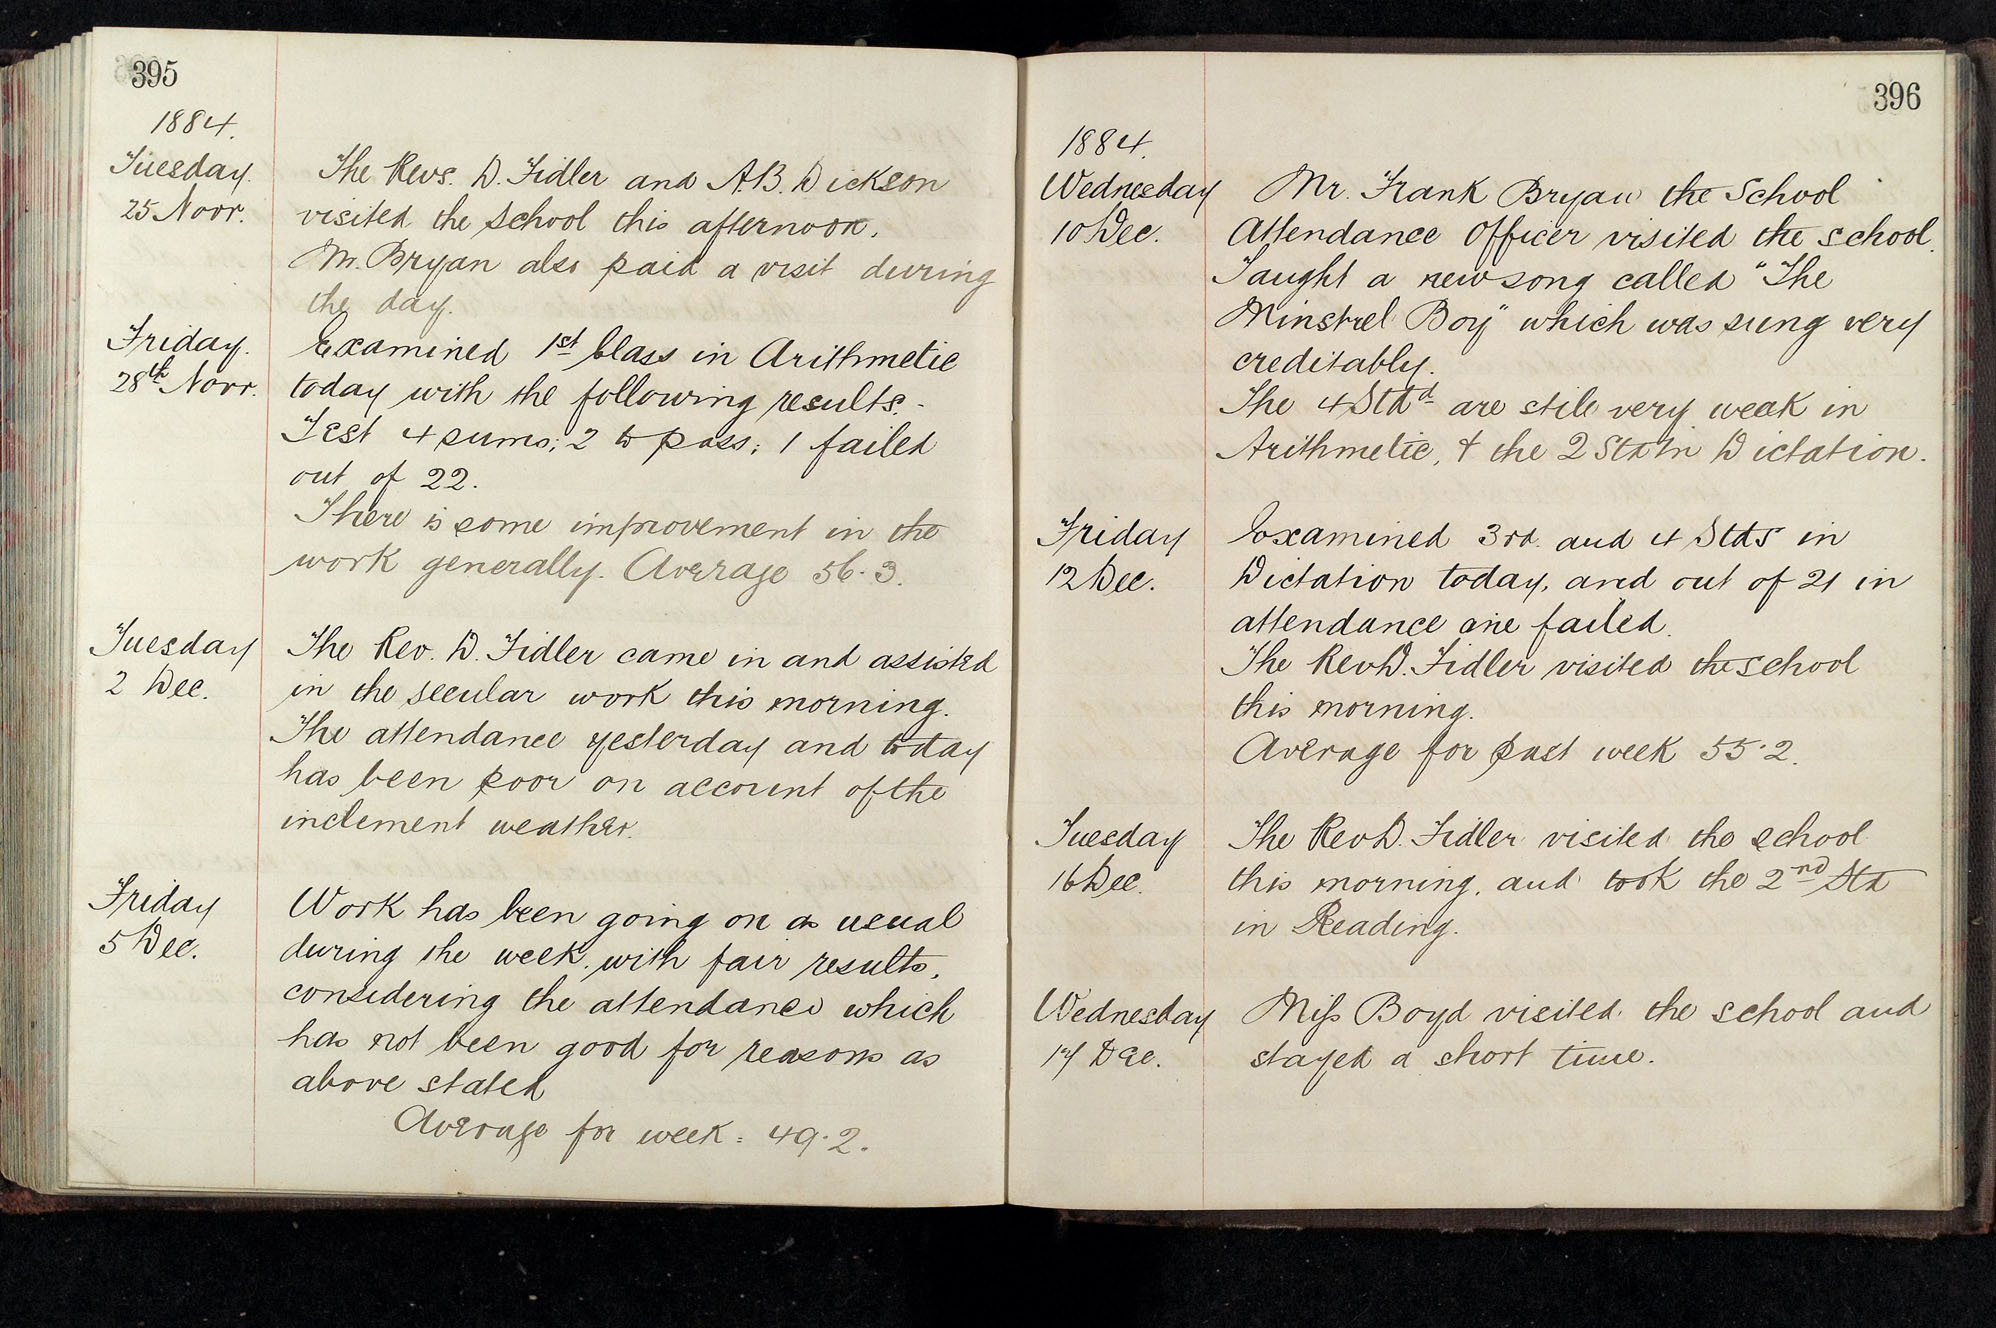 395
1884.
Tuesday.
25 Novr.
The Revs. D. Fidler and A.B. Dickson
visited the school this afternoon.
Mr. Bryan also paid a visit during
the day.
Friday.
28th Novr.
Examined 1st Class in Arithmetic
today with the following results.-
Test 4 sums; 2 to pass; 1 failed
out of 22.
There is some improvement in the
work generally. Average 56.3.
Tuesday
2 Dec.
The Rev. D. Fidler came in and assisted
in the secular work this morning.
The attendance yesterday and today
has been poor on account of the
inclement weather.
Friday
5 Dec.
Work has been going on as usual
during the week, with fair results,
considering the attendance which
has not been good for reasons as
above stated
Average for week = 49.2.
396
1884.
Wednesday
10 Dec.
Mr. Frank Bryan the School
Attendance Officer visited the school.
Taught a new song called "The
Minstrel Boy" which was sung very
creditably.
The 4 Stdd are still very weak in
Arithmetic, & the 2 Std in Dictation.
Friday
12 Dec.
Examined 3rd. and 4 Stds in
Dictation today, and out of 21 in
attendance one failed.
The Rev D. Fidler visited the school
this morning.
Average for past week 55.2.
Tuesday
16 Dec.
The Rev D. Fidler visited the school
this morning, and took the 2nd Std
in Reading.
Wednesday
17 Dec.
Miss Boyd visited the school and
stayed a short time.